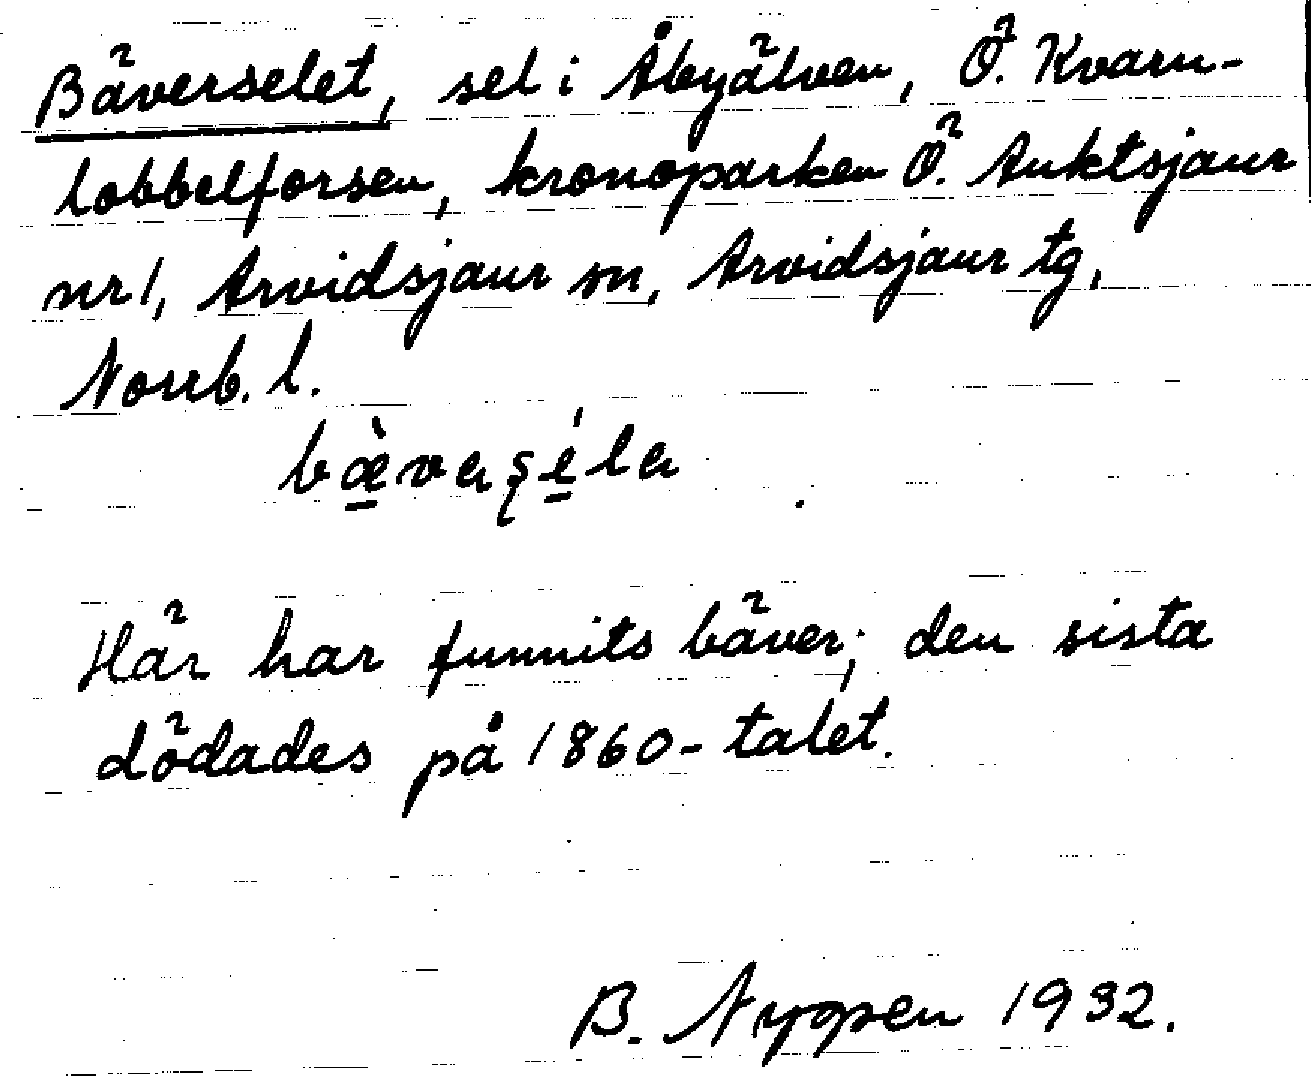 Bäverselet, sel i Åbyälven, Ö. Kvarn-
lobbelforsen, kronoparken Ö. Auktsjaur
nr 1, Arvidsjaur sn, Arvidsjaur tg,
Norrb. l.
Här har funnits bäver; den sista
dödades på 1860-talet.
B. 1932.